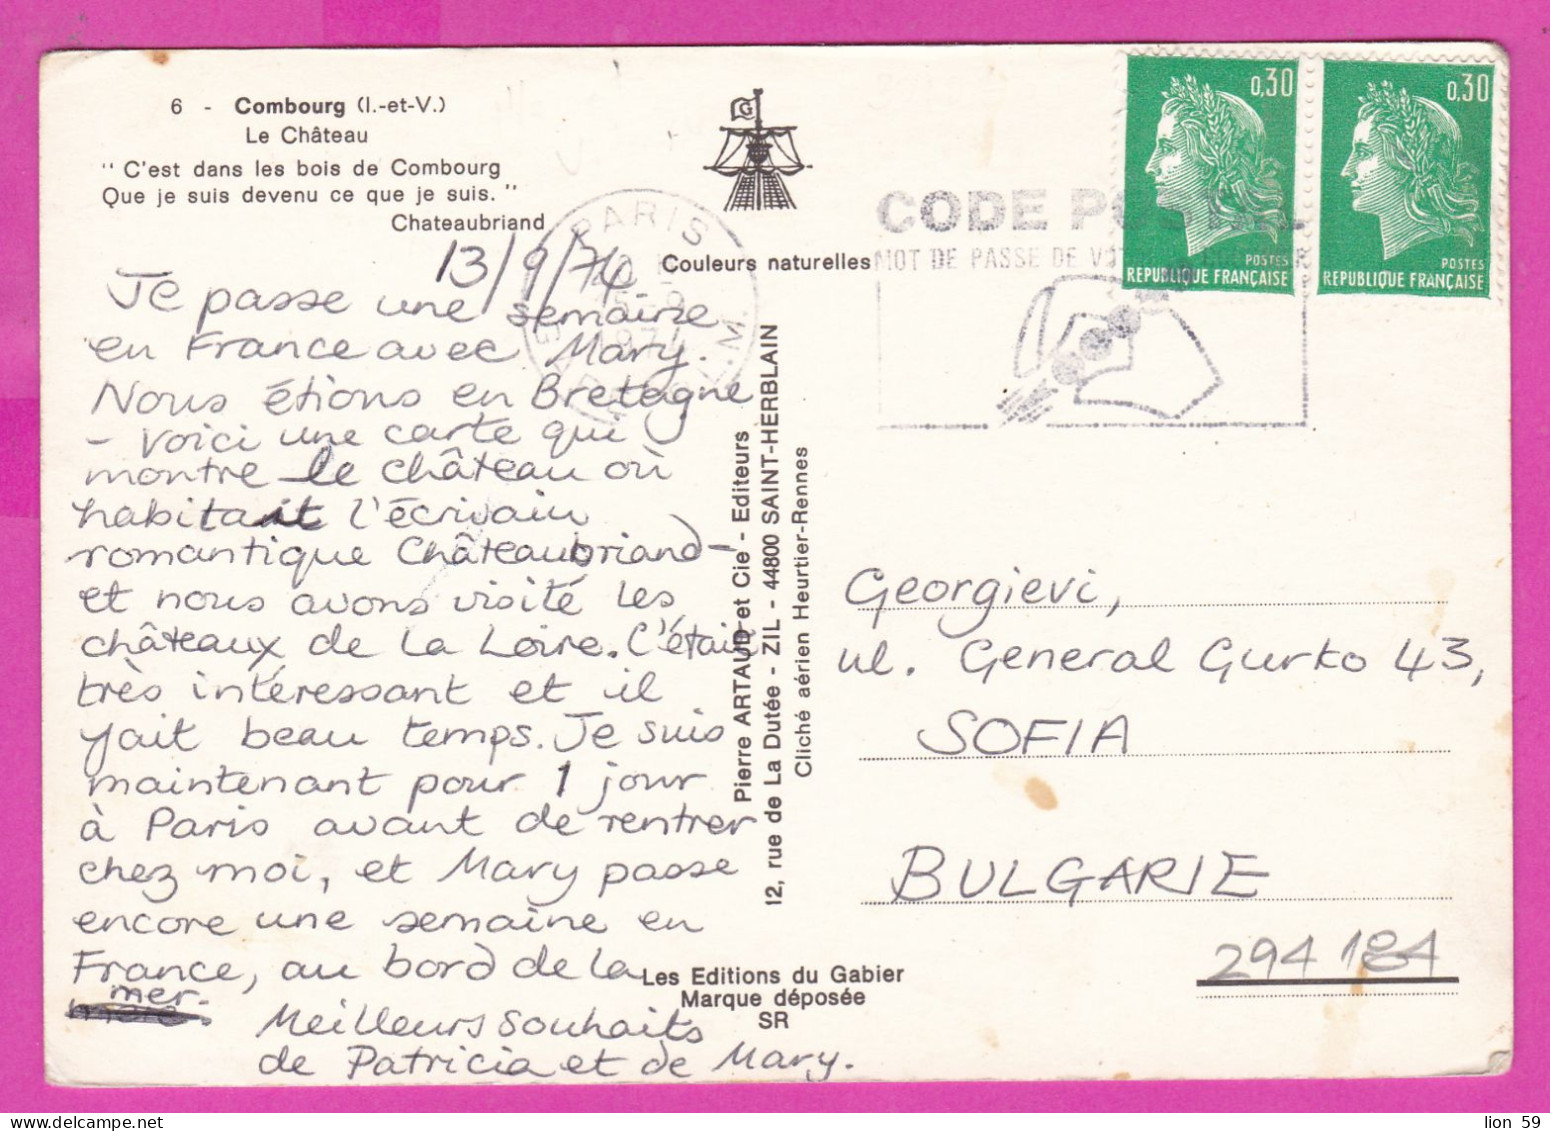 6 - Combourg (I.-et-V.)
Le Château
" C'est dans les bois de Combourg
Que je suis devenu ce que je suis. "
Chateaubriand
13/9/74
Je passe une semaine
en France avec Mary.
Nous étions en Bretagne
- voici une carte qui
montre le château où
habitait l'écrivain
romantique Châteaubriand-
et nous avons visité les
châteaux de la Loire. C'était
très intéressant et il
fait beau temps. Je suis
maintenant pour 1 jour
à Paris avant de rentrer
chez moi, et Mary passe
encore une semaine en
France, au bord de la
mer.
Meilleurs souhaits
de Patricia et de Mary.
Couleurs naturelles
Pierre ARTAUD et Cie - Editeurs
12, rue de La Dutée - ZIL - 44800 SAINT-HERBLAIN
Cliché aérien Heurtier-Rennes
Les Editions du Gabier
Marque déposée
SR
G
PARIS
CODE POSTAL
MOT DE PASSE DE
0,30
POSTES
REPUBLIQUE FRANÇAISE
0,30
POSTES
REPUBLIQUE FRANÇAISE
Georgievi,
ul. General Gurko 43,
SOFIA
BULGARIE
294184
lion 59